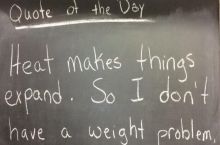 Quote of the Day
Heat makes things
expand. So I don't
have a weight problem,